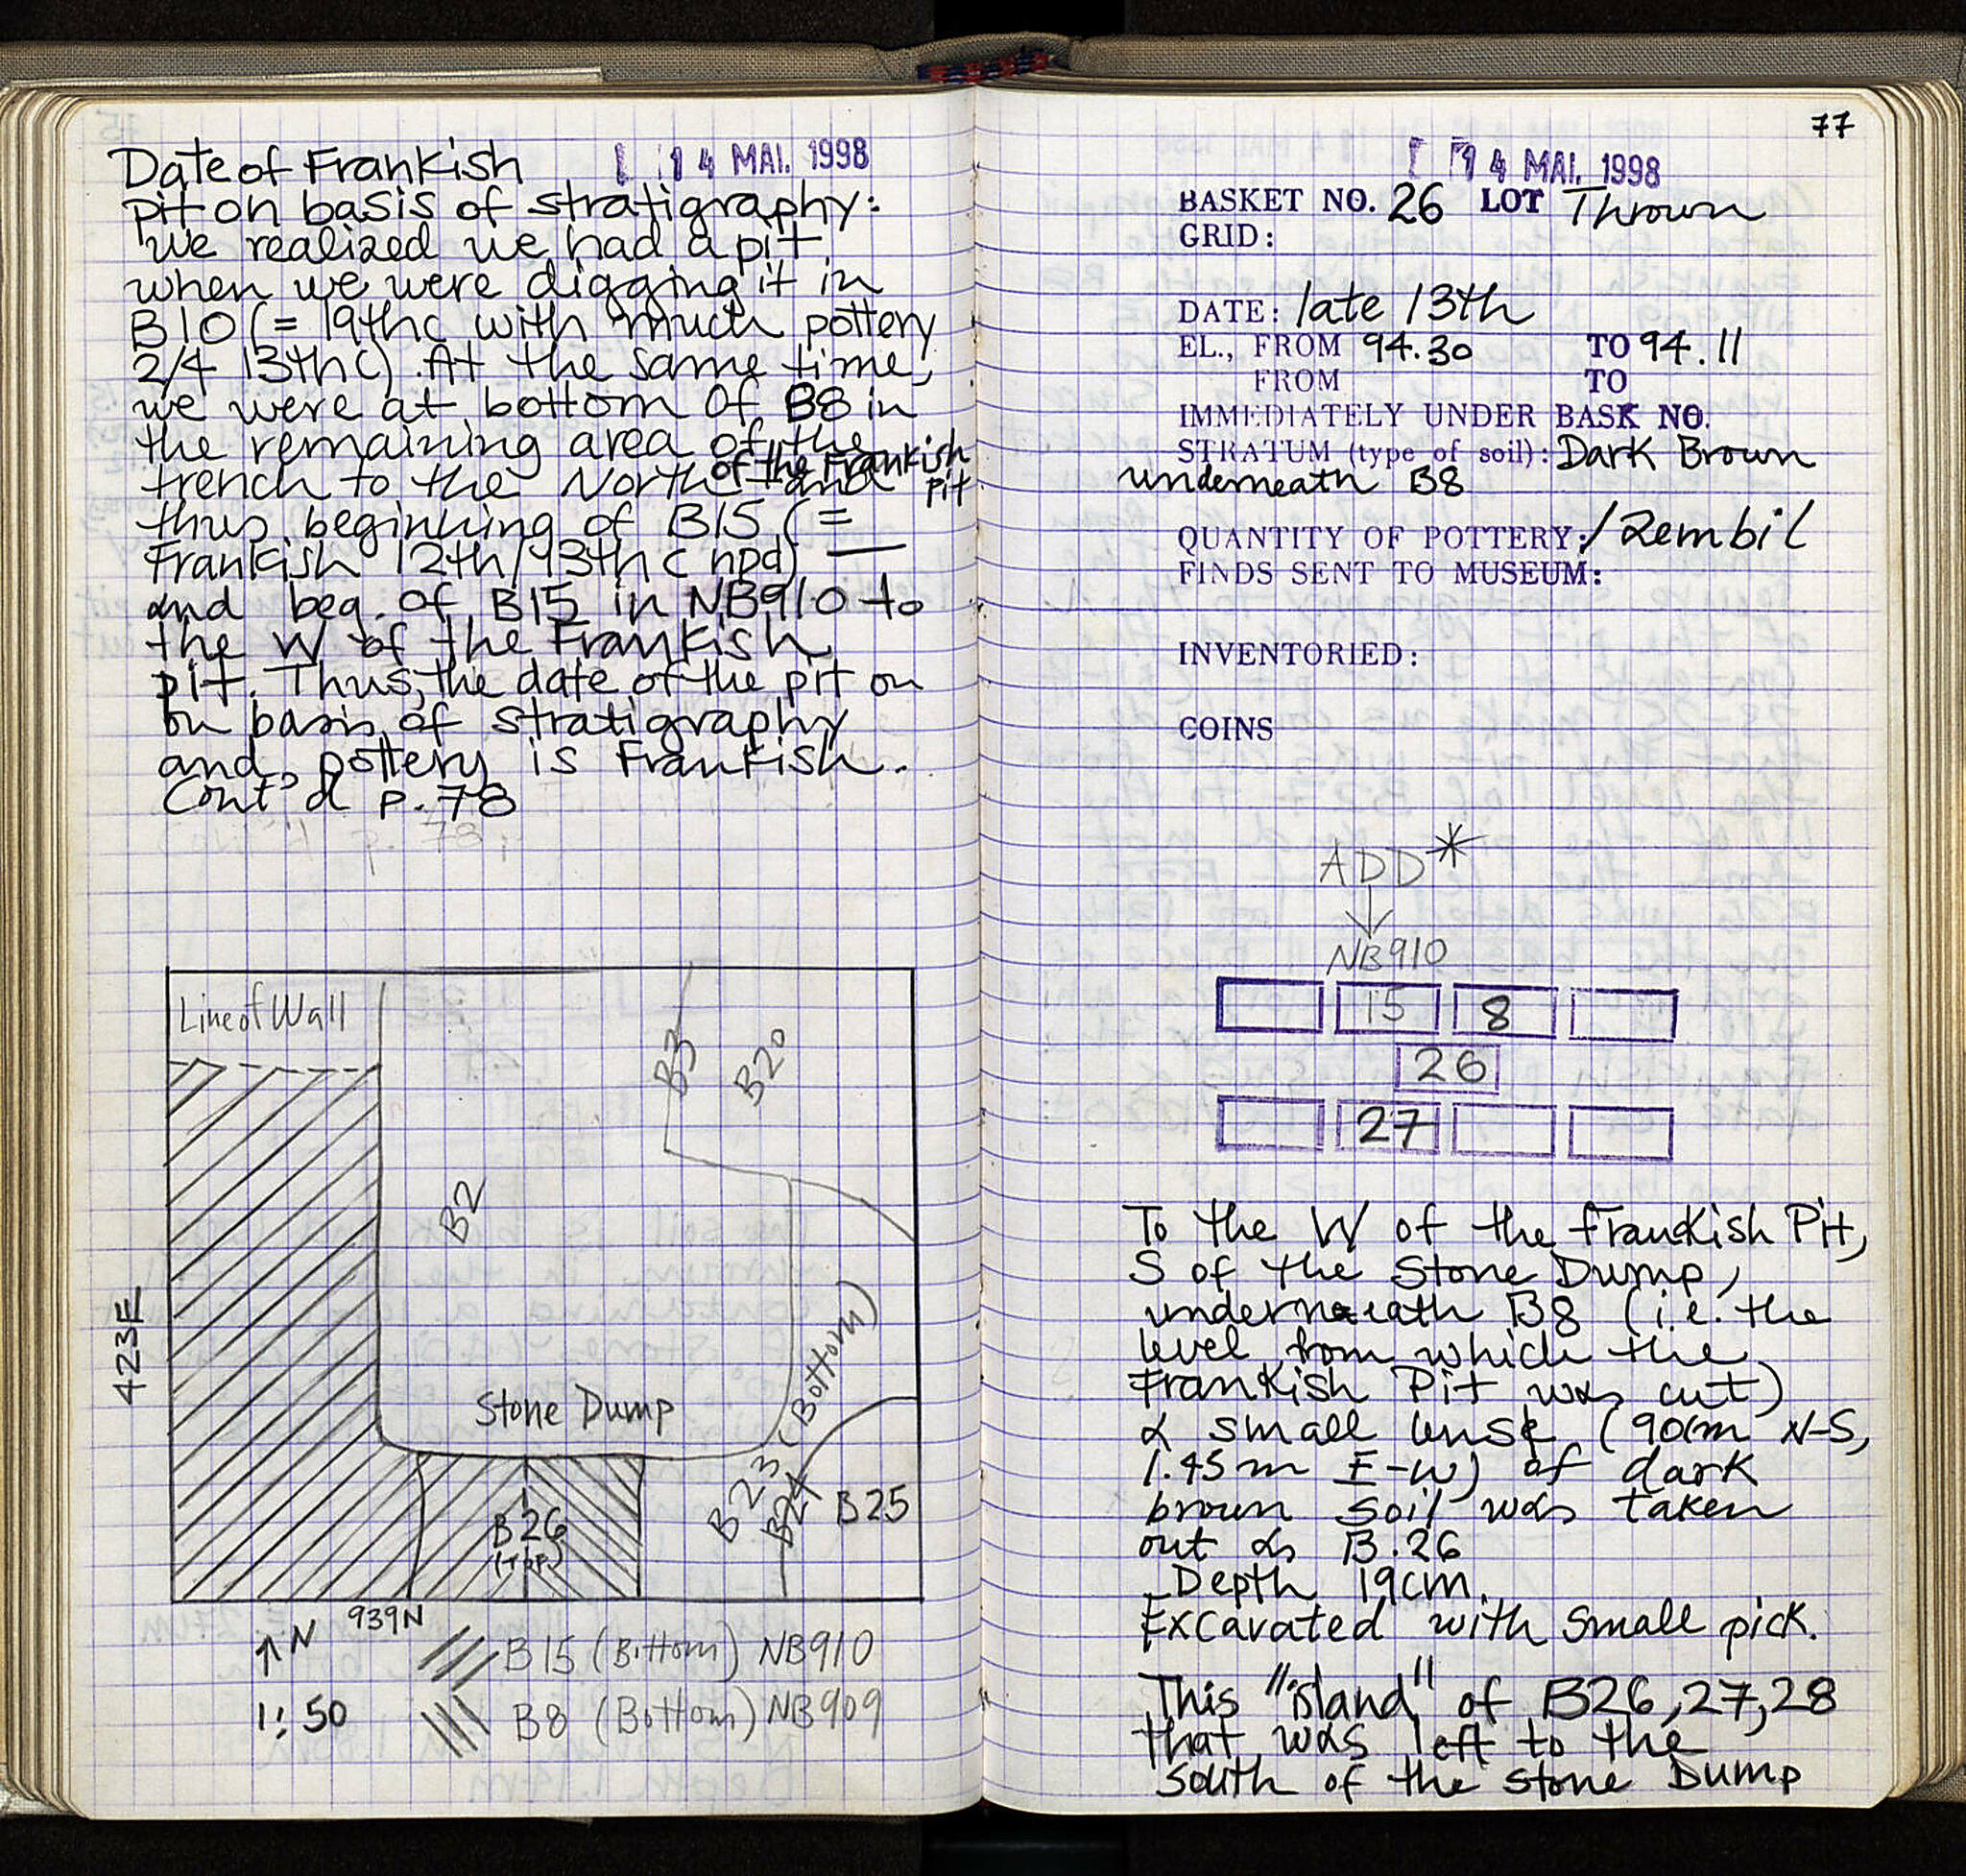 Date of Frankish 14 MAI. 1998
pit on basis of stratigraphy:
we realized we had a pit
when we were digging it in
B10 (= 19thc with much pottery
2/4 13thc). At the same time,
we were at bottom of B8 in
the remaining area of the
of the Frankish
trench to the North and pit
thus beginning of B15 (=
Frankish 12th/13th c npd) —
and beg. of B15 in NB910 to
the W of the Frankish
pit. Thus, the date of the pit on
on basis of stratigraphy
and pottery is Frankish.
Cont'd p. 78
Line of Wall
B3
B20
B2
423E
Stone Dump
B23 (Bottom)
B24
B25
B26
(TOP)
939N
↑N
1:50
B15 (Bottom) NB910
B8 (Bottom) NB909
77
14 MAI. 1998
BASKET NO. 26 LOT Thrown
GRID:
DATE: late 13th
EL., FROM 94.30 TO 94.11
FROM TO
IMMEDIATELY UNDER BASK NO.
STRATUM (type of soil): Dark Brown
underneath B8
QUANTITY OF POTTERY: 1 Zembil
FINDS SENT TO MUSEUM:
INVENTORIED:
COINS
ADD*
NB910
15 8
26
27
To the W of the Frankish Pit,
S of the Stone Dump,
underneath B8 (i.e. the
level from which the
Frankish Pit was cut)
a small lense (90cm N-S,
1.45m E-W) of dark
brown soil was taken
out as B.26
Depth 19cm.
Excavated with small pick.
This "island" of B26,27,28
that was left to the
South of the Stone Dump